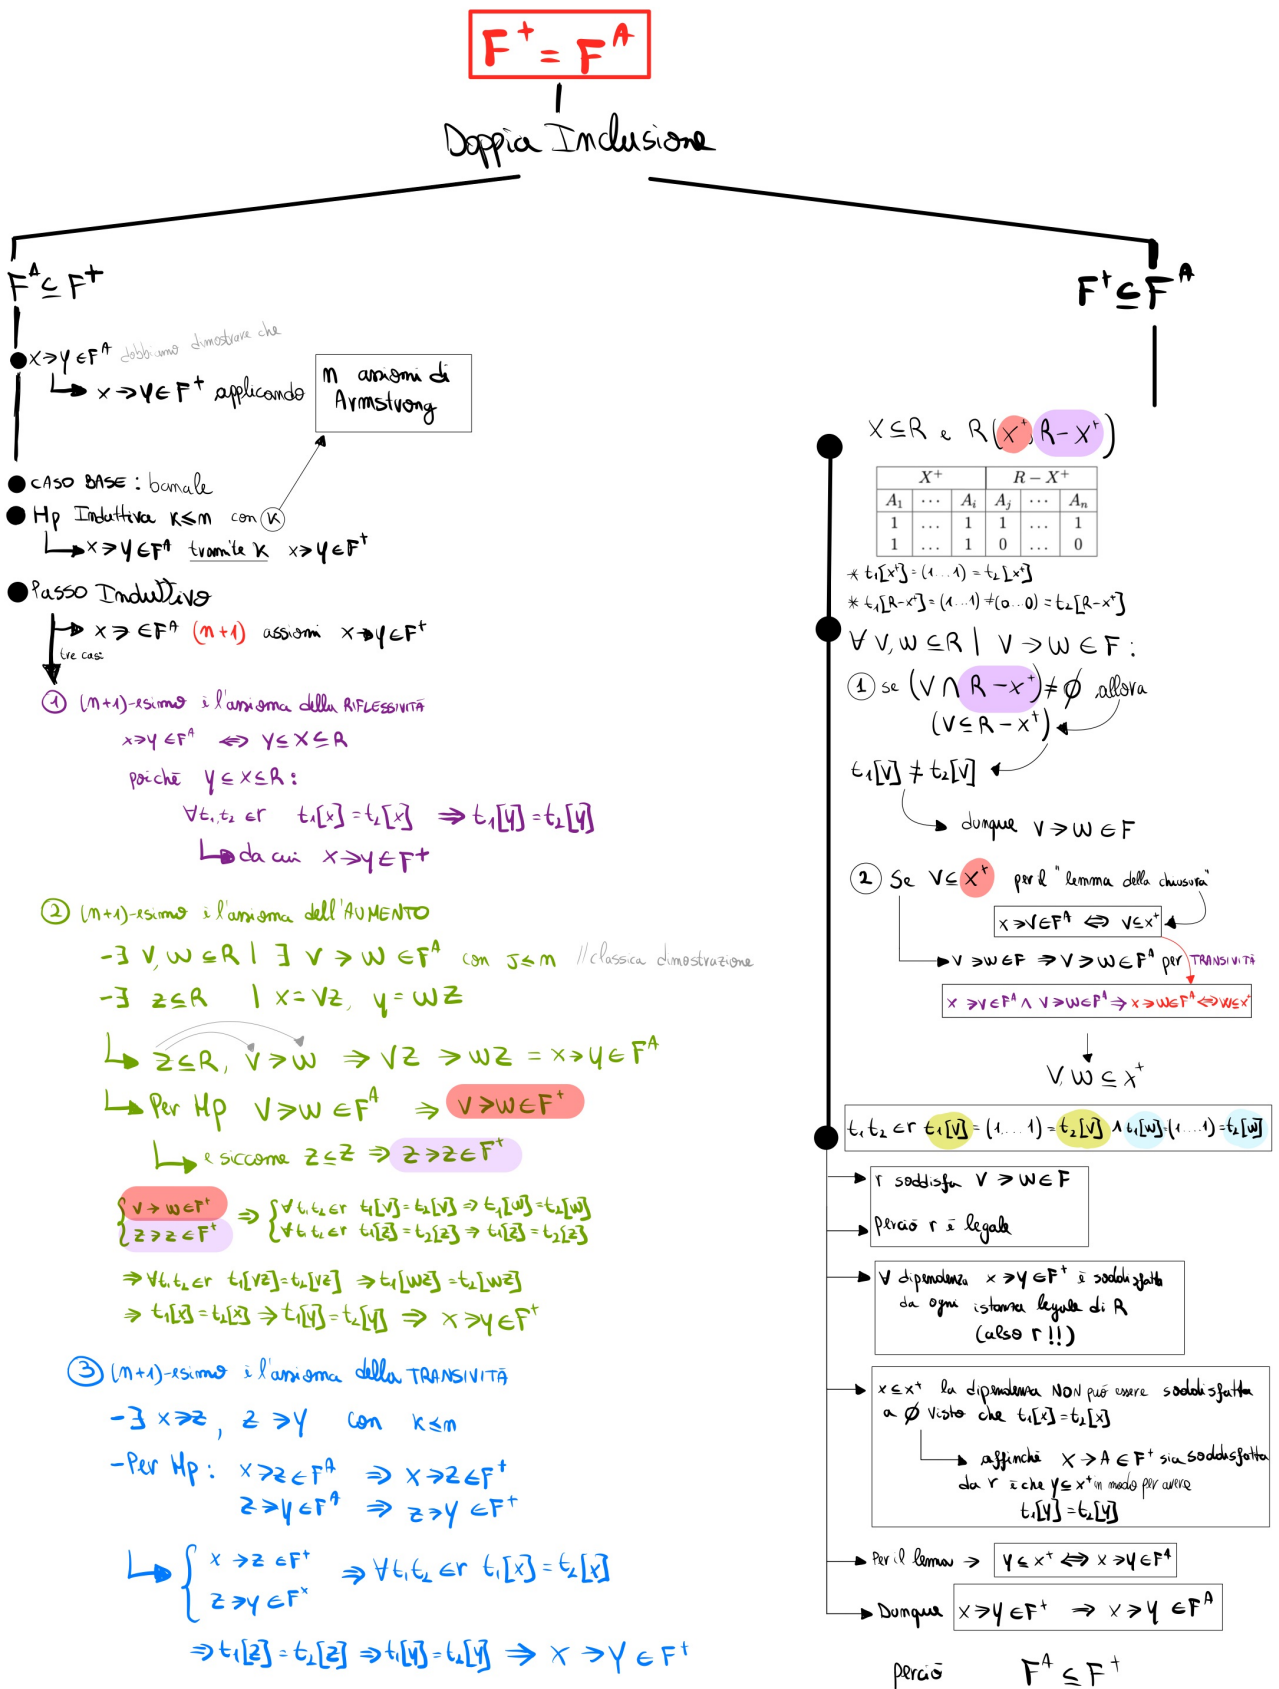 F⁺ = Fᴬ
Doppia Inclusione
Fᴬ ⊆ F⁺
X→Y ∈ Fᴬ dobbiamo dimostrare che
X→Y ∈ F⁺ applicando
n assiomi di
Armstrong
CASO BASE : banale
Hp Induttiva K≤n con K
X→Y ∈ Fᴬ tramite K X→Y ∈ F⁺
Passo Induttivo
X→ ∈ Fᴬ (n+1) assiomi X→Y ∈ F⁺
tre casi
1 (n+1)-esimo è l'assioma della RIFLESSIVITÀ
X→Y ∈ Fᴬ ⇔ Y ⊆ X ⊆ R
poichè Y ⊆ X ⊆ R :
∀t₁,t₂ ∈ r t₁[X] = t₂[X] ⇒ t₁[Y] = t₂[Y]
da cui X→Y ∈ F⁺
2 (n+1)-esimo è l'assioma dell'AUMENTO
-∃ V, W ⊆ R | ∃ V → W ∈ Fᴬ con J≤n //classica dimostrazione
-∃ Z ⊆ R | X = VZ, Y = WZ
Z ⊆ R, V → W ⇒ VZ → WZ = X→Y ∈ Fᴬ
Per Hp V→W ∈ Fᴬ ⇒ V→W ∈ F⁺
e siccome Z ⊆ Z ⇒ Z→Z ∈ F⁺
{ V→W ∈ F⁺ ⇒ { ∀t₁t₂ ∈ r t₁[V] = t₂[V] ⇒ t₁[W] = t₂[W]
Z→Z ∈ F⁺ ∀t₁t₂ ∈ r t₁[Z] = t₂[Z] ⇒ t₁[Z] = t₂[Z]
⇒ ∀t₁t₂ ∈ r t₁[VZ] = t₂[VZ] ⇒ t₁[WZ] = t₂[WZ]
⇒ t₁[X] = t₂[X] ⇒ t₁[Y] = t₂[Y] ⇒ X→Y ∈ F⁺
3 (n+1)-esimo è l'assioma della TRANSIVITÀ
-∃ X→Z, Z→Y con K≤n
-Per Hp : X→Z ∈ Fᴬ ⇒ X→Z ∈ F⁺
Z→Y ∈ Fᴬ ⇒ Z→Y ∈ F⁺
{ X→Z ∈ F⁺ ⇒ ∀t₁t₂ ∈ r t₁[X] = t₂[X]
Z→Y ∈ F⁺
⇒ t₁[Z] = t₂[Z] ⇒ t₁[Y] = t₂[Y] ⇒ X→Y ∈ F⁺
F⁺ ⊆ Fᴬ
X ⊆ R e R(X⁺, R-X⁺)
X⁺ R − X⁺
A₁ ⋯ Aᵢ Aⱼ ⋯ Aₙ
1 … 1 1 … 1
1 … 1 0 … 0
* t₁[X⁺] = (1...1) = t₂[X⁺]
* t₁[R-X⁺] = (1...1) ≠ (0...0) = t₂[R-X⁺]
∀ V, W ⊆ R | V→W ∈ F :
1 se (V ∩ R-X⁺) ≠ ∅ allora
(V ⊆ R-X⁺)
t₁[V] ≠ t₂[V]
dunque V→W ∈ F
2 Se V ⊆ X⁺ per il "lemma della chiusura"
X→V ∈ Fᴬ ⇔ V ⊆ X⁺
V→W ∈ F ⇒ V→W ∈ Fᴬ per TRANSIVITÀ
X→V ∈ Fᴬ ∧ V→W ∈ Fᴬ ⇒ X→W ∈ Fᴬ ⇔ W ⊆ X⁺
V, W ⊆ X⁺
t₁ t₂ ∈ r t₁[V] = (1....1) = t₂[V] ∧ t₁[W] = (1....1) = t₂[W]
r soddisfa V→W ∈ F
perciò r è legale
∀ dipendenza X→Y ∈ F⁺ è soddisfatta
da ogni istanza legale di R
(also r !!)
X ⊆ X⁺ la dipendenza NON può essere soddisfatta
a ∅ visto che t₁[X] = t₂[X]
affinchè X→A ∈ F⁺ sia soddisfatta
da r è che Y ⊆ X⁺ in modo per avere
t₁[Y] = t₂[Y]
Per il lemma → Y ⊆ X⁺ ⇔ X→Y ∈ Fᴬ
Dunque X→Y ∈ F⁺ ⇒ X→Y ∈ Fᴬ
perciò Fᴬ ⊆ F⁺